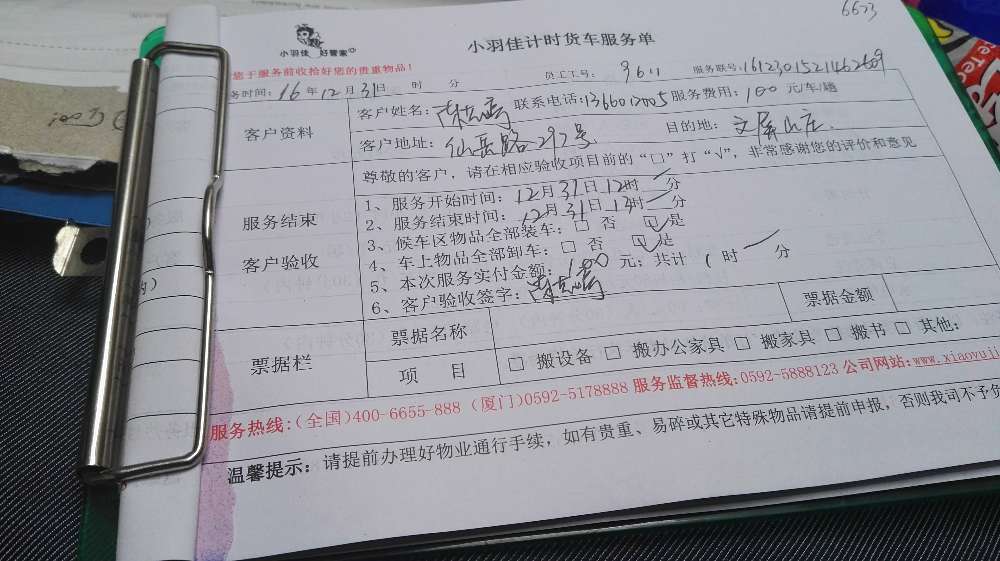 6623
小羽佳 好管家
小羽佳计时货车服务单
您于服务前收拾好您的贵重物品!
务时间: 16 年 12 月 31 日 时 分 员工工号: 3611 服务联号:
客户资料
客户姓名: 联系电话: 服务费用: 100 元/车/趟
客户地址: 仙岳路292号 目的地: 文屏山庄
尊敬的客户,请在相应验收项目前的“□”打“√”,非常感谢您的评价和意见
服务结束
客户验收
1、服务开始时间: 12月31日12时 分
2、服务结束时间: 12月31日13时 分
3、候车区物品全部装车: □ 否 ☑ 是
4、车上物品全部卸车: □ 否 ☑ 是
5、本次服务实付金额: 100 元; 共计 1 时 分
6、客户验收签字:
票据栏
票据名称 票据金额
项 目 □ 搬设备 □ 搬办公家具 □ 搬家具 □ 搬书 □ 其他:
服务热线:(全国)400-6655-888 (厦门)0592-5178888 服务监督热线:0592-5888123 公司网站:www.xiaoyuji
温馨提示: 请提前办理好物业通行手续,如有贵重、易碎或其它特殊物品请提前申报,否则我司不予